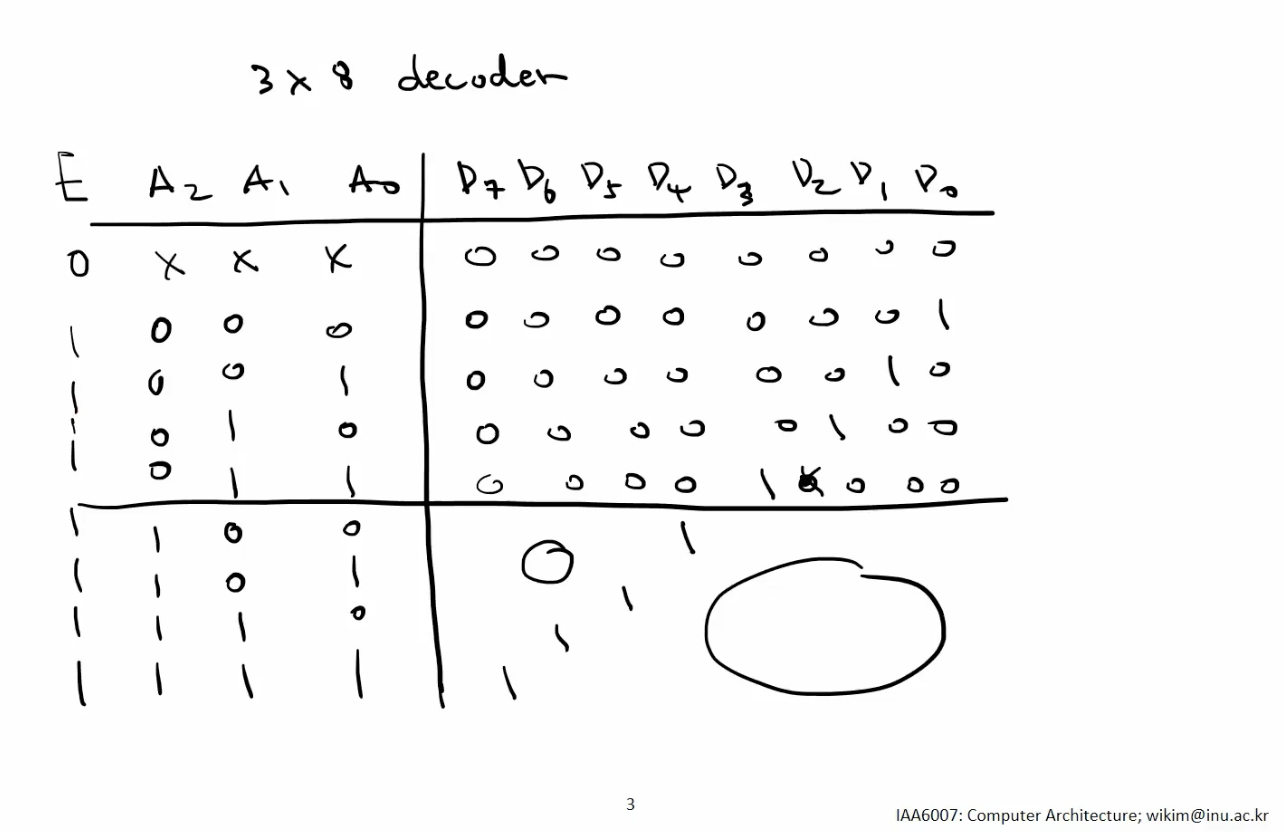 3 x 8 decoder
E A2 A1 A0 D7 D6 D5 D4 D3 D2 D1 D0
0 x x x 0 0 0 0 0 0 0 0
1 0 0 0 0 0 0 0 0 0 0 1
1 0 0 1 0 0 0 0 0 0 1 0
1 0 1 0 0 0 0 0 0 1 0 0
1 0 1 1 0 0 0 0 1 0 0 0
1 1 0 0 1
1 1 0 1 0 1
1 1 1 0 1
1 1 1 1 1
3
IAA6007: Computer Architecture; wikim@inu.ac.kr